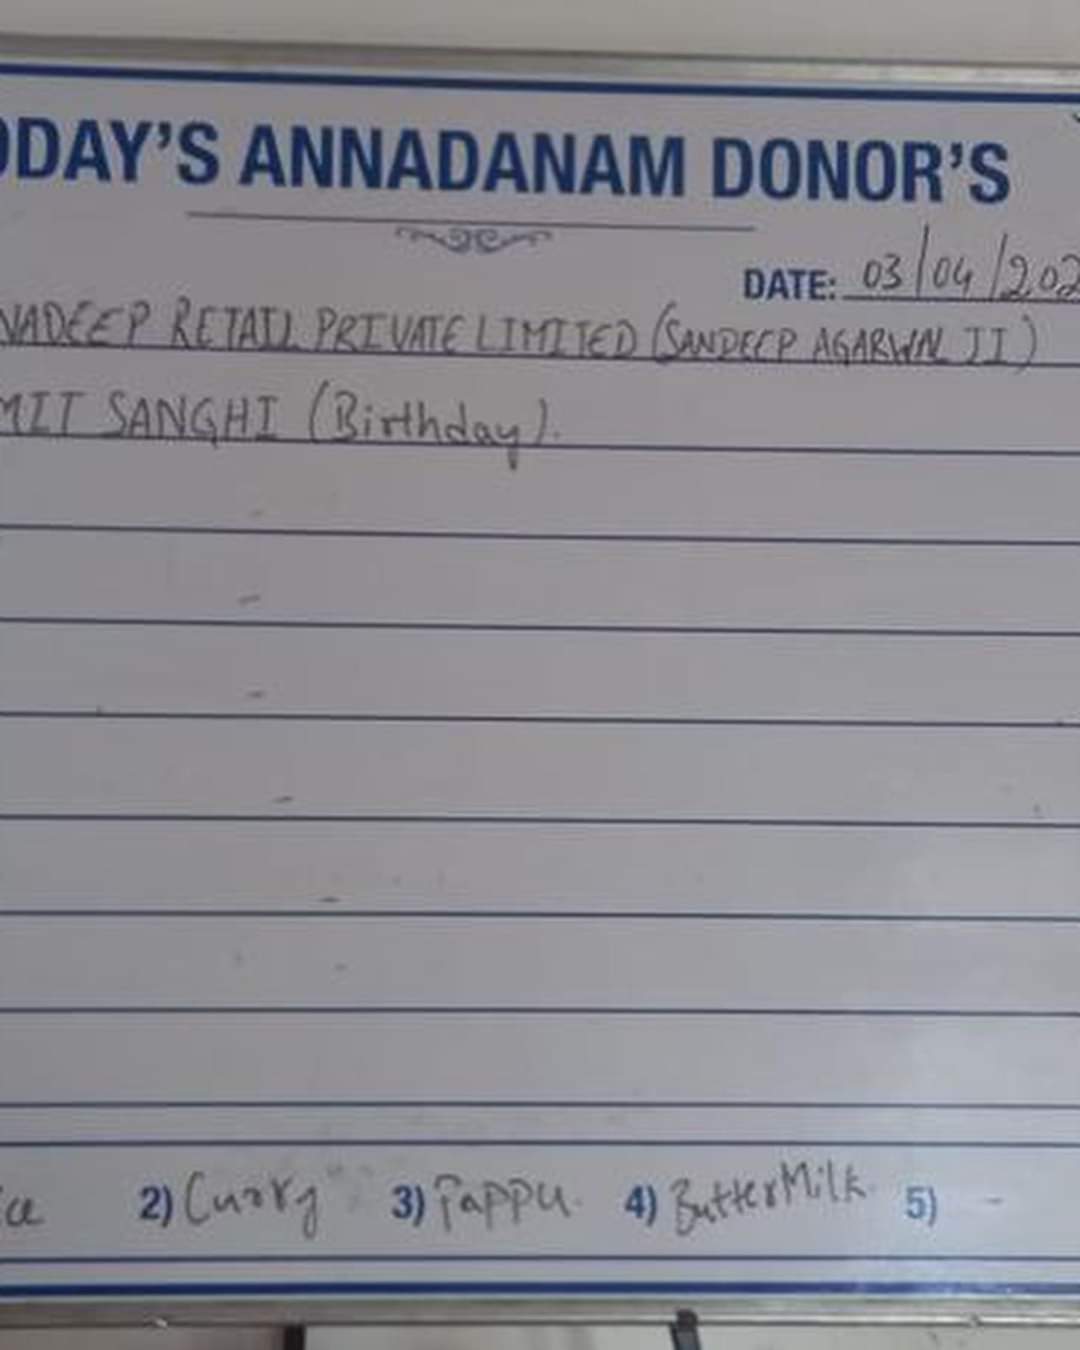 ODAY'S ANNADANAM DONOR'S
DATE: 03/04/202
NADEEP RETAIL PRIVATE LIMITED (SANDEEP AGARWAL JI)
MIT SANGHI (Birthday).
ice 2) Curry 3) Pappu 4) ButterMilk 5) -